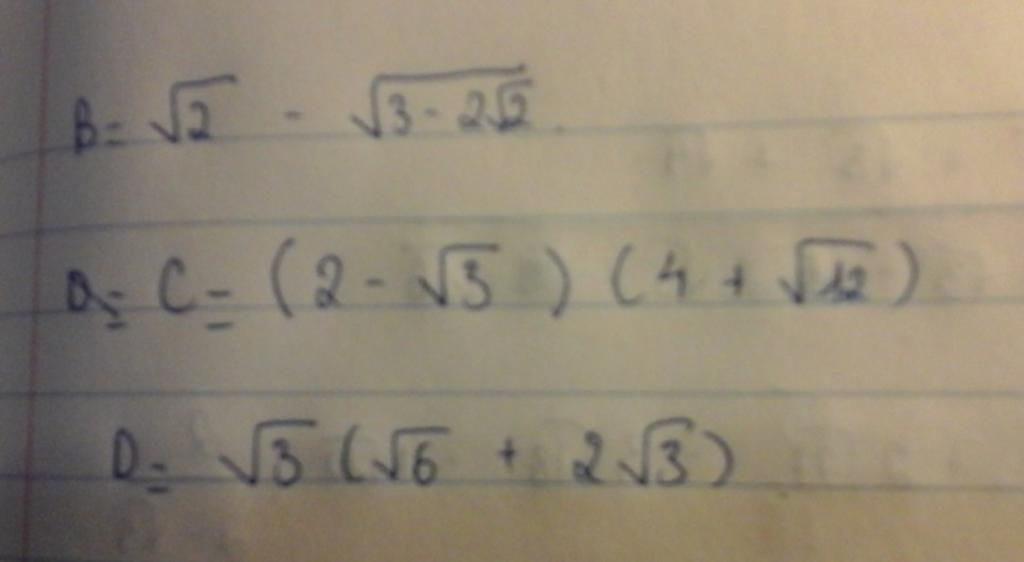 B = √2 - √(3 - 2√2)
D = C = (2 - √3) (4 + √12)
D = √3 (√6 + 2√3)